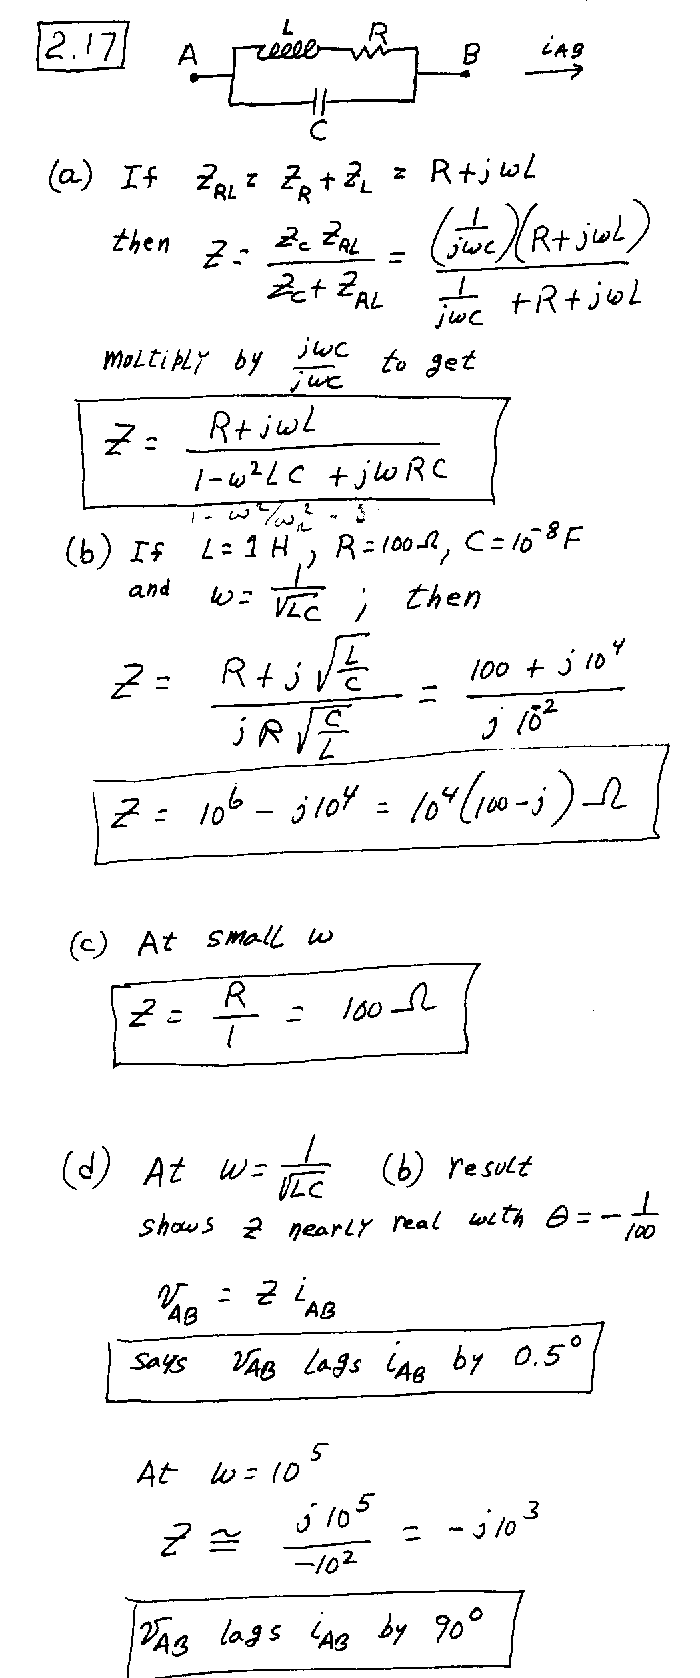 2.17
A L R B i_AB
C
(a) If Z_RL = Z_R + Z_L = R + jωL
then Z = Z_C Z_RL / (Z_C + Z_RL) = (1/jωC)(R + jωL) / (1/jωC + R + jωL)
Moltiply by jωC/jωC to get
Z = (R + jωL) / (1 - ω²LC + jωRC)
(b) If L = 1 H, R = 100 Ω, C = 10⁻⁸ F
and ω = 1/√LC ; then
Z = (R + j√(L/C)) / (jR√(C/L)) = (100 + j10⁴) / (j10⁻²)
Z = 10⁶ - j10⁴ = 10⁴(100 - j) Ω
(c) At small ω
Z = R/1 = 100 Ω
(d) At ω = 1/√LC (b) result
shows Z nearly real with θ = -1/100
v_AB = Z i_AB
says v_AB lags i_AB by 0.5°
At ω = 10⁵
Z ≅ j10⁵ / -10² = -j10³
v_AB lags i_AB by 90°